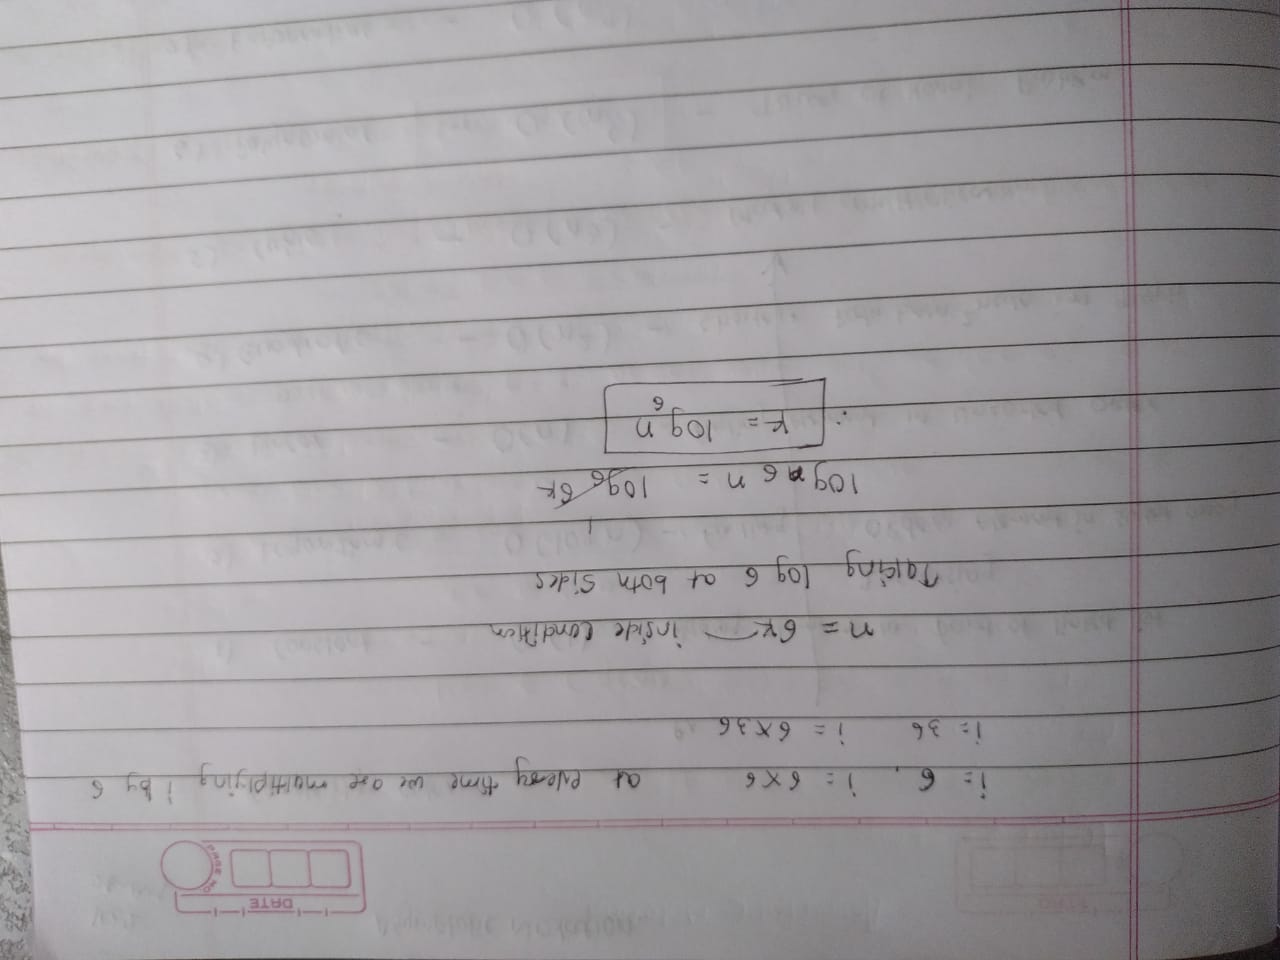 DATE
PAGE NO.
i = 6, i = 6×6 at every time we are multiplying i by 6
i = 36 i = 6×36
n = 6k inside condition
Taking log 6 at both sides
1
log 6 n = log6 6k
∴ k = log6 n